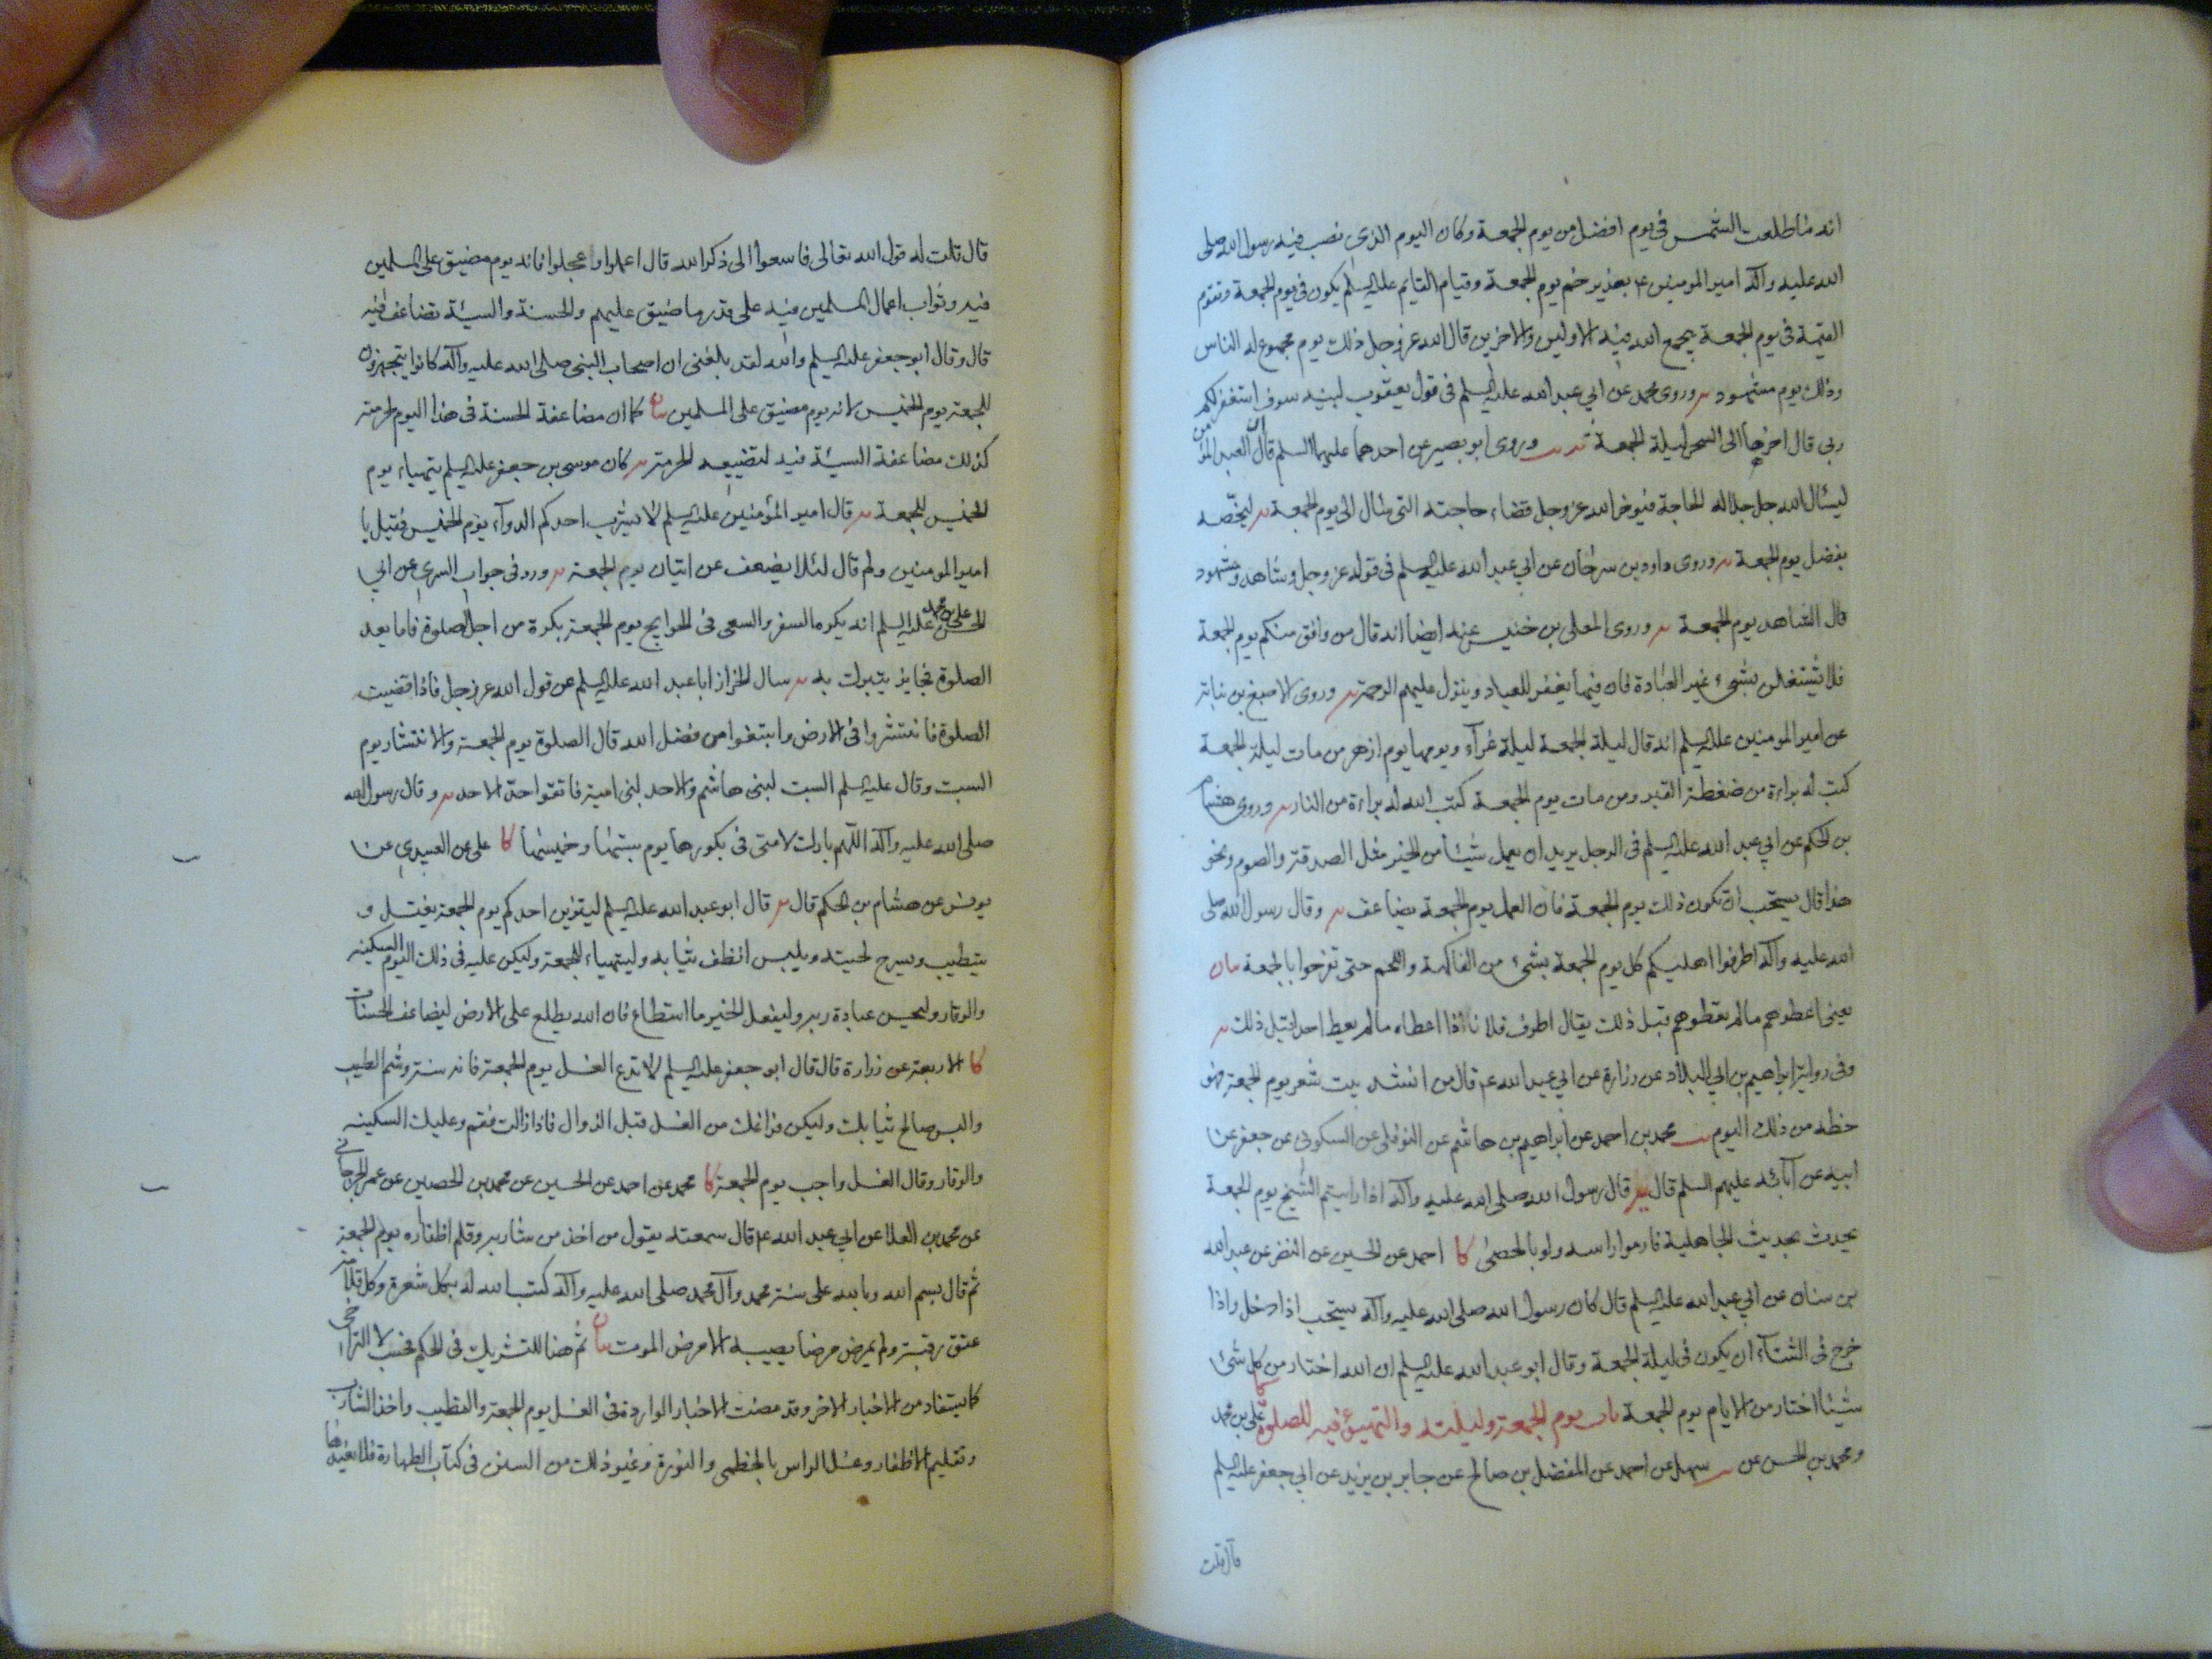 انه ما طلعت الشمس فى يوم افضل من يوم الجمعة وكان اليوم الذى نصب فيه رسول الله صلى
الله عليه وآله امير المومنين ع بغدير خم يوم الجمعة وقيام القايم عليه السلم يكون فى يوم الجمعة وتقوم
القيمة فى يوم الجمعة يجمع الله فيه الاولين والاخرين قال الله عز وجل ذلك يوم مجموع له الناس
وذلك يوم مشهود وروى محمد عن ابي عبد الله عليه السلم فى قول يعقوب لبنيه سوف استغفر لكم
ربى قال اخرها الى السحر ليلة الجمعة وروى ابو بصير عن احدهما عليهما السلم قال ان العبد المؤمن
ليسئال الله جل جلاله الحاجة فيوخر الله عز وجل قضاء حاجته التى سئال الى يوم الجمعة ليخصه
بفضل يوم الجمعة وروى داود بن سرحان عن ابي عبد الله عليه السلم فى قوله عز وجل وشاهد ومشهود
قال الشاهد يوم الجمعة وروى المعلى بن خنيس عنه ايضا انه قال من وافق منكم يوم الجمعة
فلا يشتغلن بشىء غير العبادة فان فيها يغفر للعباد وينزل عليهم الرحمة وروى الاصبغ بن نباتة
عن امير المومنين عليه السلم انه قال ليلة الجمعة ليلة غرآء ويومها يوم ازهر من مات ليلة الجمعة
كتب له براءة من ضغطة القبر ومن مات يوم الجمعة كتب الله له براءة من النار وروى هشام
بن الحكم عن ابي عبد الله عليه السلم فى الرجل يريد ان يعمل شيئا من الخير مثل الصدقة والصوم ونحو
هذا قال يستحب ان يكون ذلك يوم الجمعة فان العمل يوم الجمعة يضاعف وقال رسول الله صلى
الله عليه وآله اطرفوا اهليكم كل يوم الجمعة بشىء من الفاكهة واللحم حتى تفرحوا بالجمعة بيان
يعنى اعطوهم ما لم يعطوهم قبل ذلك يقال اطرف فلانا اذا اعطاه ما لم يعط احد قبل ذلك
وفى رواية ابراهيم بن ابي البلاد عن زرارة عن ابي عبد الله ع قال من انشد بيت شعر يوم الجمعة فهو
حظه من ذلك اليوم محمد بن احمد عن ابراهيم بن هاشم عن النوفلى عن السكونى عن جعفر عن
ابيه عن آبائه عليهم السلم قال قال رسول الله صلى الله عليه وآله اذا رايتم الشيخ يوم الجمعة
يحدث بحديث الجاهلية فارموا راسه ولو بالحصى كا احمد عن الحسين عن النضر عن عبد الله
بن سنان عن ابي عبد الله عليه السلم قال كان رسول الله صلى الله عليه وآله يستحب اذا دخل واذا
خرج فى الشتآء ان يكون فى ليلة الجمعة وقال ابو عبد الله عليه السلم ان الله اختار من كل شئ
شيئا اختار من الايام يوم الجمعة باب يوم الجمعة وليلته والتهيئ فيه للصلوة كا على بن محمد
ومحمد بن الحسن عن سهل عن احمد عن المفضل بن صالح عن جابر بن يزيد عن ابي جعفر عليه السلم
قال قلت
قال قلت له قول الله تعالى فاسعوا الى ذكر الله قال اعملوا وعجلوا فانه يوم مضيق على المسلمين
فيه وثواب اعمال المسلمين فيه على قدر ما ضيق عليهم والحسنة والسيئة تضاعف فيه
قال وقال ابو جعفر عليه السلم والله لقد بلغنى ان اصحاب النبى صلى الله عليه وآله كانوا يتجهزون
للجمعة يوم الخميس لانه يوم مضيق على المسلمين بيان كما ان مضاعفة الحسنة فى هذا اليوم لحرمته
كذلك مضاعفة السيئة فيه لتضييعه الحرمة كان موسى بن جعفر عليه السلم يتهياء يوم
الخميس للجمعة قال امير المؤمنين عليه السلم لا يشرب احدكم الدوآء يوم الخميس فقيل يا
امير المومنين ولم قال لئلا يضعف عن اتيان يوم الجمعة وورد فى جواب السرى عن ابي
الحسن على بن محمد عليه السلم انه يكره السفر والسعى فى الحوايج يوم الجمعة بكرة من اجل الصلوة فاما بعد
الصلوة فجايز يتبرك به سال الخزاز ابا عبد الله عليه السلم عن قول الله عز وجل فاذا قضيت
الصلوة فانتشروا فى الارض وابتغوا من فضل الله قال الصلوة يوم الجمعة والانتشار يوم
السبت وقال عليه السلم السبت لبنى هاشم والاحد لبنى امية فاتقوا حد الاحد وقال رسول الله
صلى الله عليه وآله اللهم بارك لامتى فى بكورها يوم سبتها وخميسها كا على عن العبيدى عن
يونس عن هشام بن الحكم قال قال ابو عبد الله عليه السلم ليتزين احدكم يوم الجمعة يغتسل و
يتطيب ويسرح لحيته ويلبس انظف ثيابه وليتهياء للجمعة وليكن عليه فى ذلك اليوم السكينة
والوقار وليحسن عبادة ربه وليفعل الخير ما استطاع فان الله يطلع على الارض ليضاعف الحسنات
كا الاربعة عن زرارة قال قال ابو جعفر عليه السلم لا تدع الغسل يوم الجمعة فانه سنة وشم الطيب
والبس صالح ثيابك وليكن فراغك من الغسل قبل الزوال فاذا زالت فقم وعليك السكينة
والوقار وقال الغسل واجب يوم الجمعة كا محمد عن احمد عن الحسين عن محمد بن الحصين عن عمر الجرجانى
عن محمد بن العلا عن ابي عبد الله ع قال سمعته يقول من اخذ من شاربه وقلم اظفاره يوم الجمعة
ثم قال بسم الله وبالله على سنة محمد وآل محمد صلى الله عليه وآله كتب الله له بكل شعرة وكل قلامة
عتق رقبة ولم يمرض مرضا يصيبه الا مرض الموت بيان ثم هنا للتشريك فى الحكم فحسب لا التراخى
كما يستفاد من الاخبار الاخر وقد مضت الاخبار الواردة فى الغسل يوم الجمعة والتطيب واخذ الشارب
وتقليم الاظفار وغسل الراس بالخطمى والنورة وغير ذلك من السنن فى كتاب الطهارة فلا نعيدها